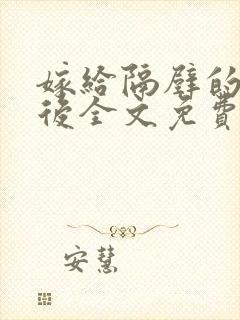 嫁给隔壁的
後全文免費
安慧